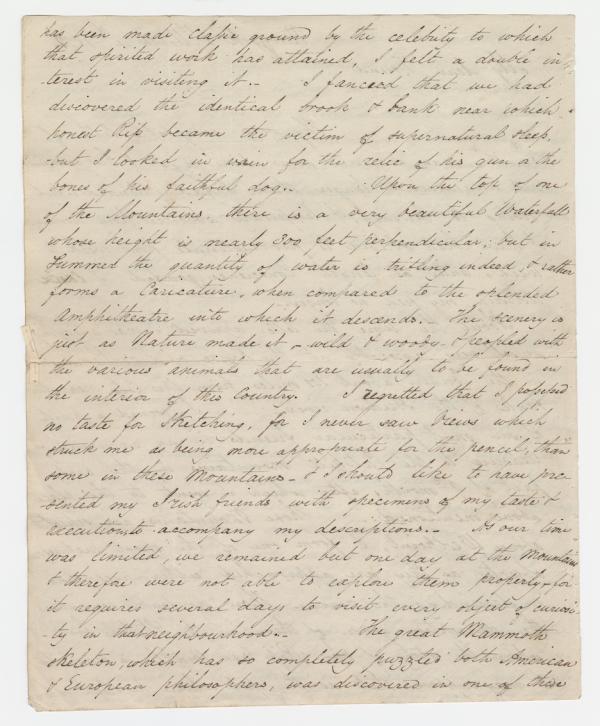 has been made classic ground by the celebrity to which
that spirited work has attained, I felt a double in
terest in visiting it.- I fancied that we had
discovered the identical brook & bank near which
honest Rip became the victim of supernatural sleep,
but I looked in vain for the relic of his gun or the
bones of his faithful dog.- Upon the top of one
of the Mountains there is a very beautiful Waterfall
whose height is nearly 300 feet perpendicular; but in
Summer the quantity of water is trifling indeed, & rather
forms a Caricature, when compared to the splended
Amphitheatre into which it descends.- The scenery is
just as Nature made it - wild & woody - & peopled with
the various animals that are usually to be found in
the interior of this Country. I regretted that I possessed
no taste for Sketching, for I never saw Views which
struck me as being more appropriate for the pencil, than
some in these Mountains - & I should like to have pre
sented my Irish friends with specimens of my taste &
execution to accompany my descriptions.- As our time
was limited, we remained but one day at the Mountains
& therefore were not able to explore them properly - for
it requires several days to visit every object of curiosi
ty in that neighbourhood.- The great Mammoth
skeleton, which has so completely puzzled both American
& European philosophers, was discovered in one of these